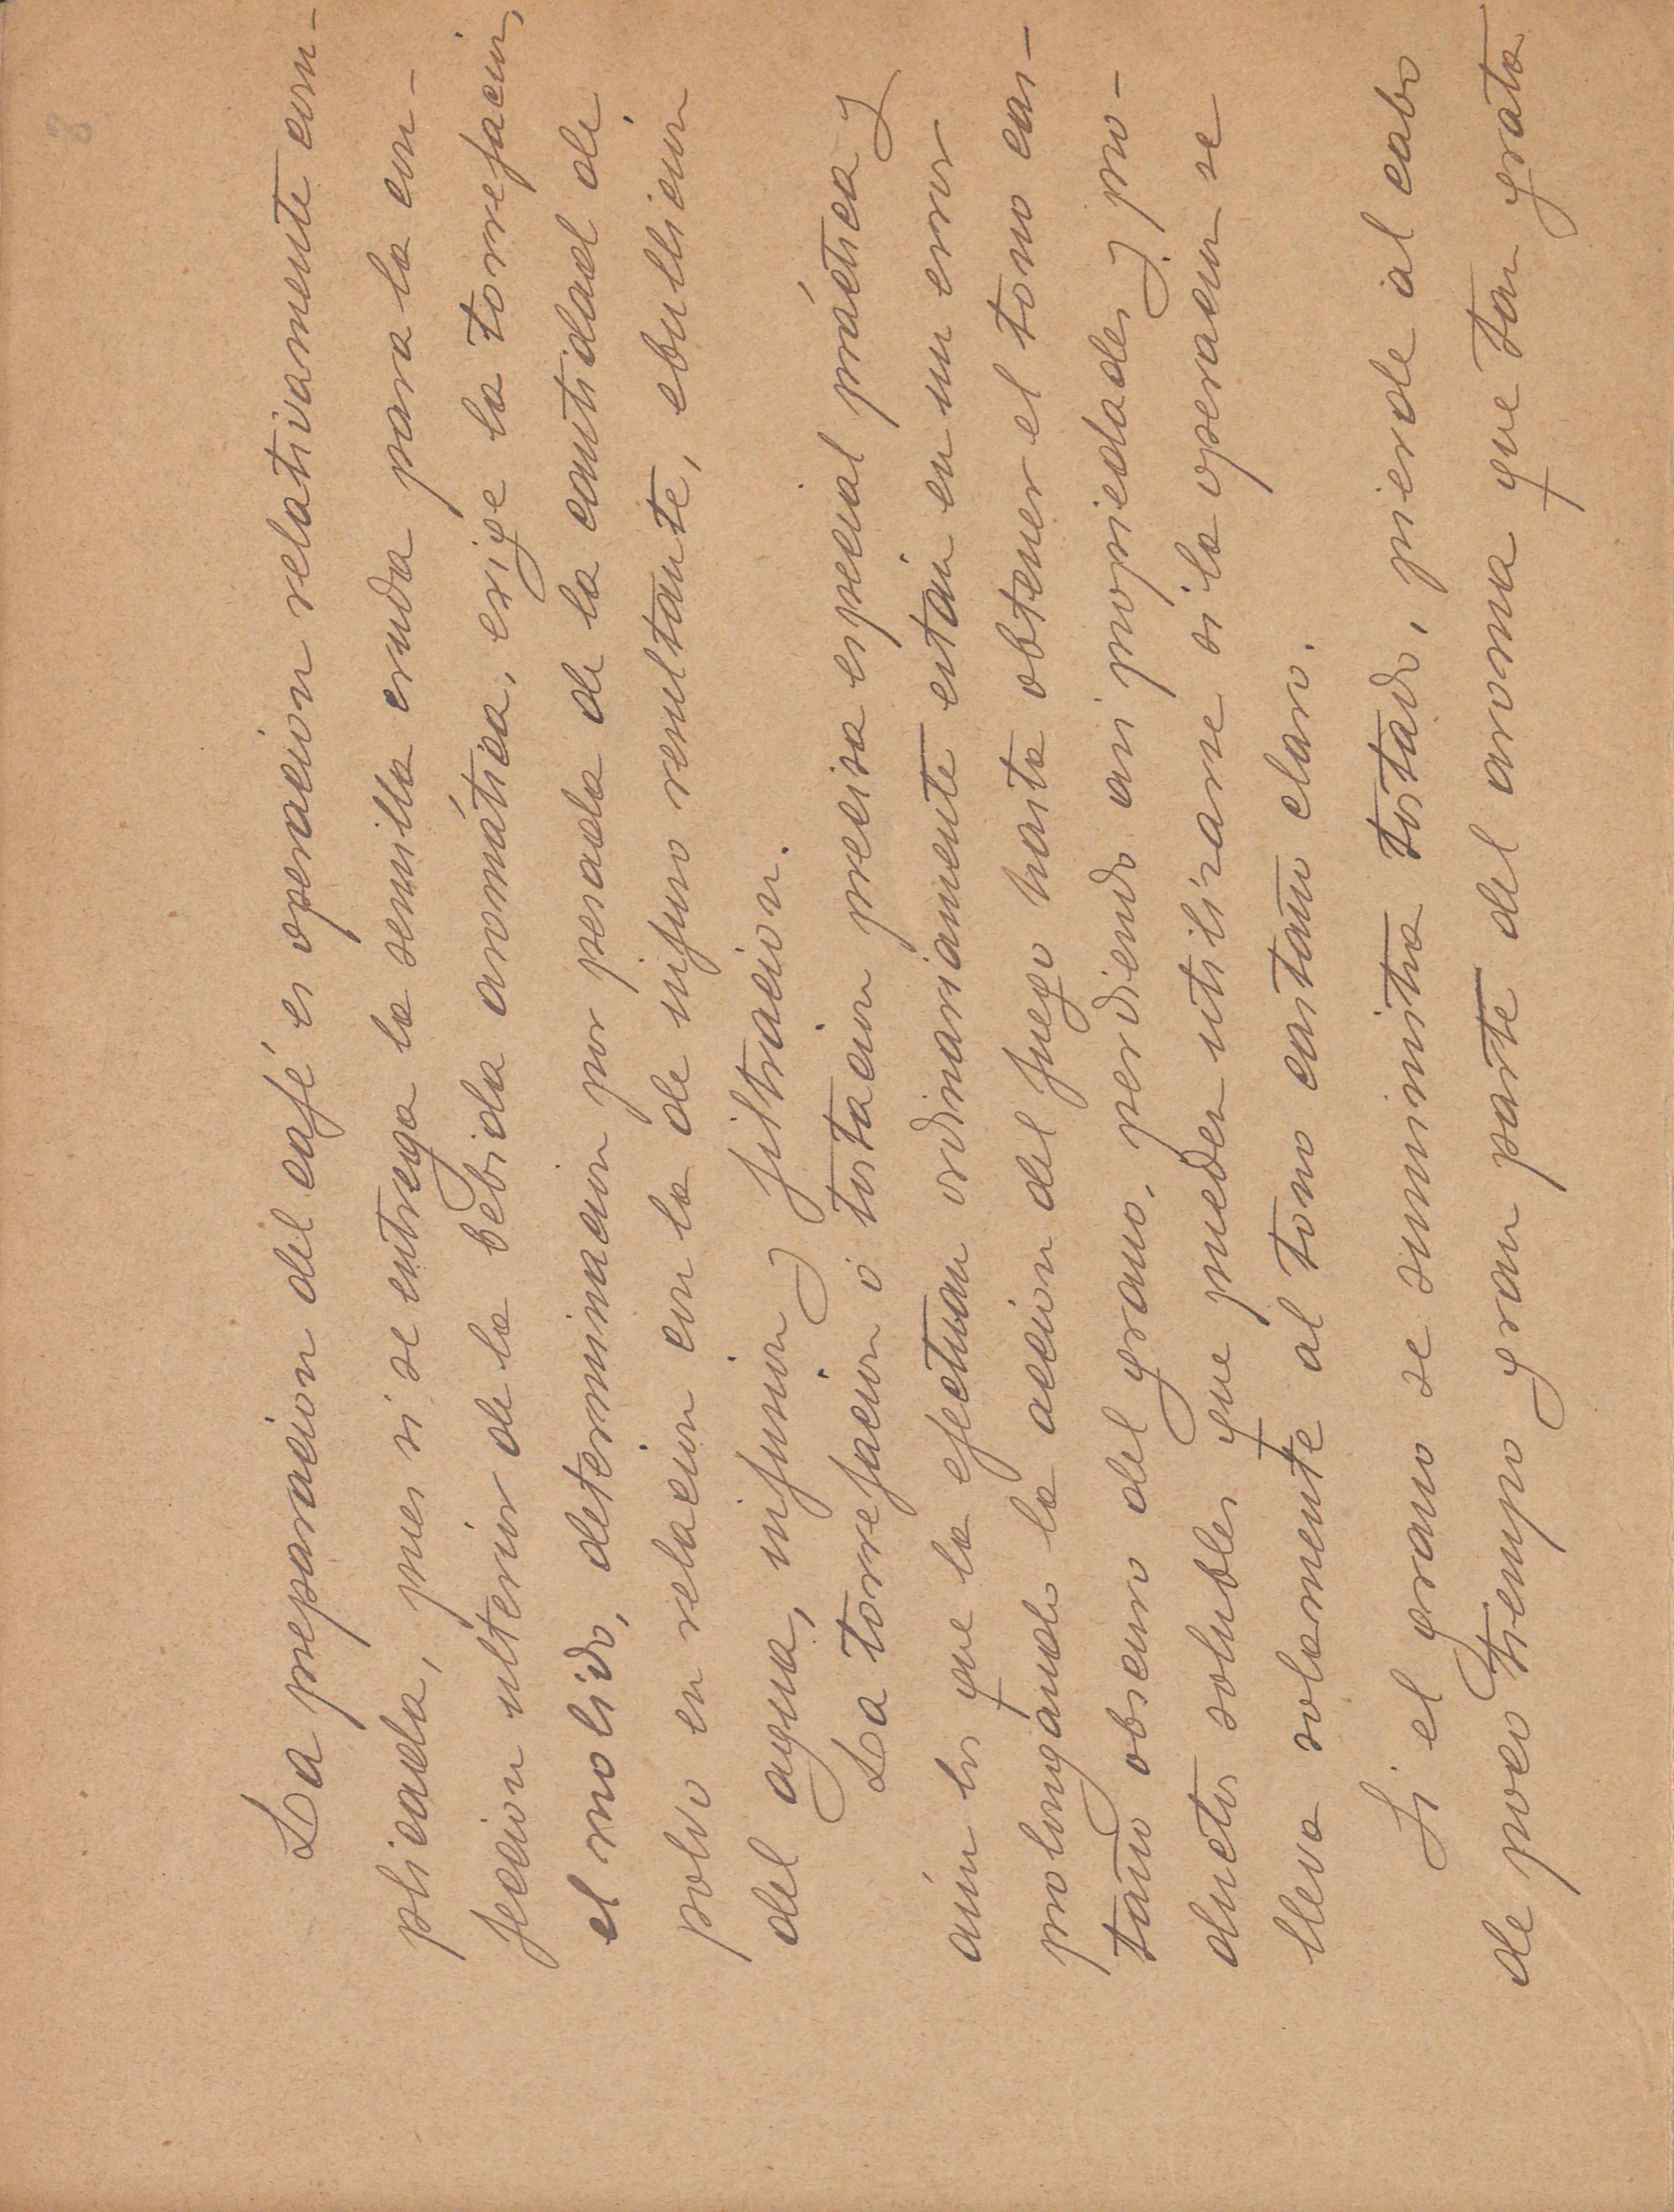 8
La preparacion del café es operacion relativamente com-
plicada, pues si se entrega la semilla cruda para la con-
feccion ulterior de la bebida aromática, exige la torrefacion,
el molido, determinacion por pesada de la cantidad de
polvo en relacion con la de infuso resultante, ebullicion
del agua, infusion y filtracion.
La torrefacion ó tostacion precisa especial práctica y
aún los que la efectuan ordinariamente estan en un error
prolongando la accion del fuego hasta obtener el tono cas-
taño obscuro del grano, perdiendo asi propiedades y pro-
ductos solubles que pueden utilizarse si la operacion se
lleva solamente al tono castaño claro.
Si el grano se suministra tostado, pierde al cabo
de poco tiempo gran parte del aroma que tan grata